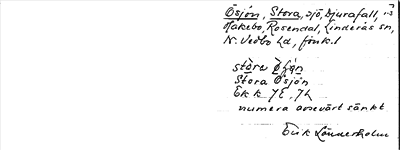 Ösjön, Stora, sjö, Djurafall,
Hakebo, Rosendal, Linderås sn,
N. Vedbo hd, Jönk. l
stòra
Stora Ösjön
Ek k 7E, 7h
numera avsevärt sänkt
Erik Lönnerholm